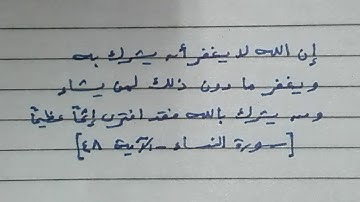 إن الله لا يغفر أن يشرك به
ويغفر ما دون ذلك لمن يشاء
ومن يشرك بالله فقد افترى إثمًا عظيمًا
[سورة النساء - الآية ٤٨]